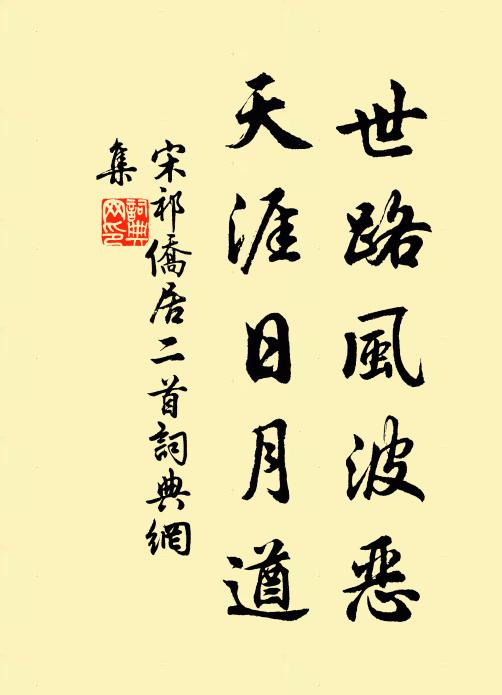 世路風波惡
天涯日月遒
宋祁僑居二首詞典網
集
詞典網印